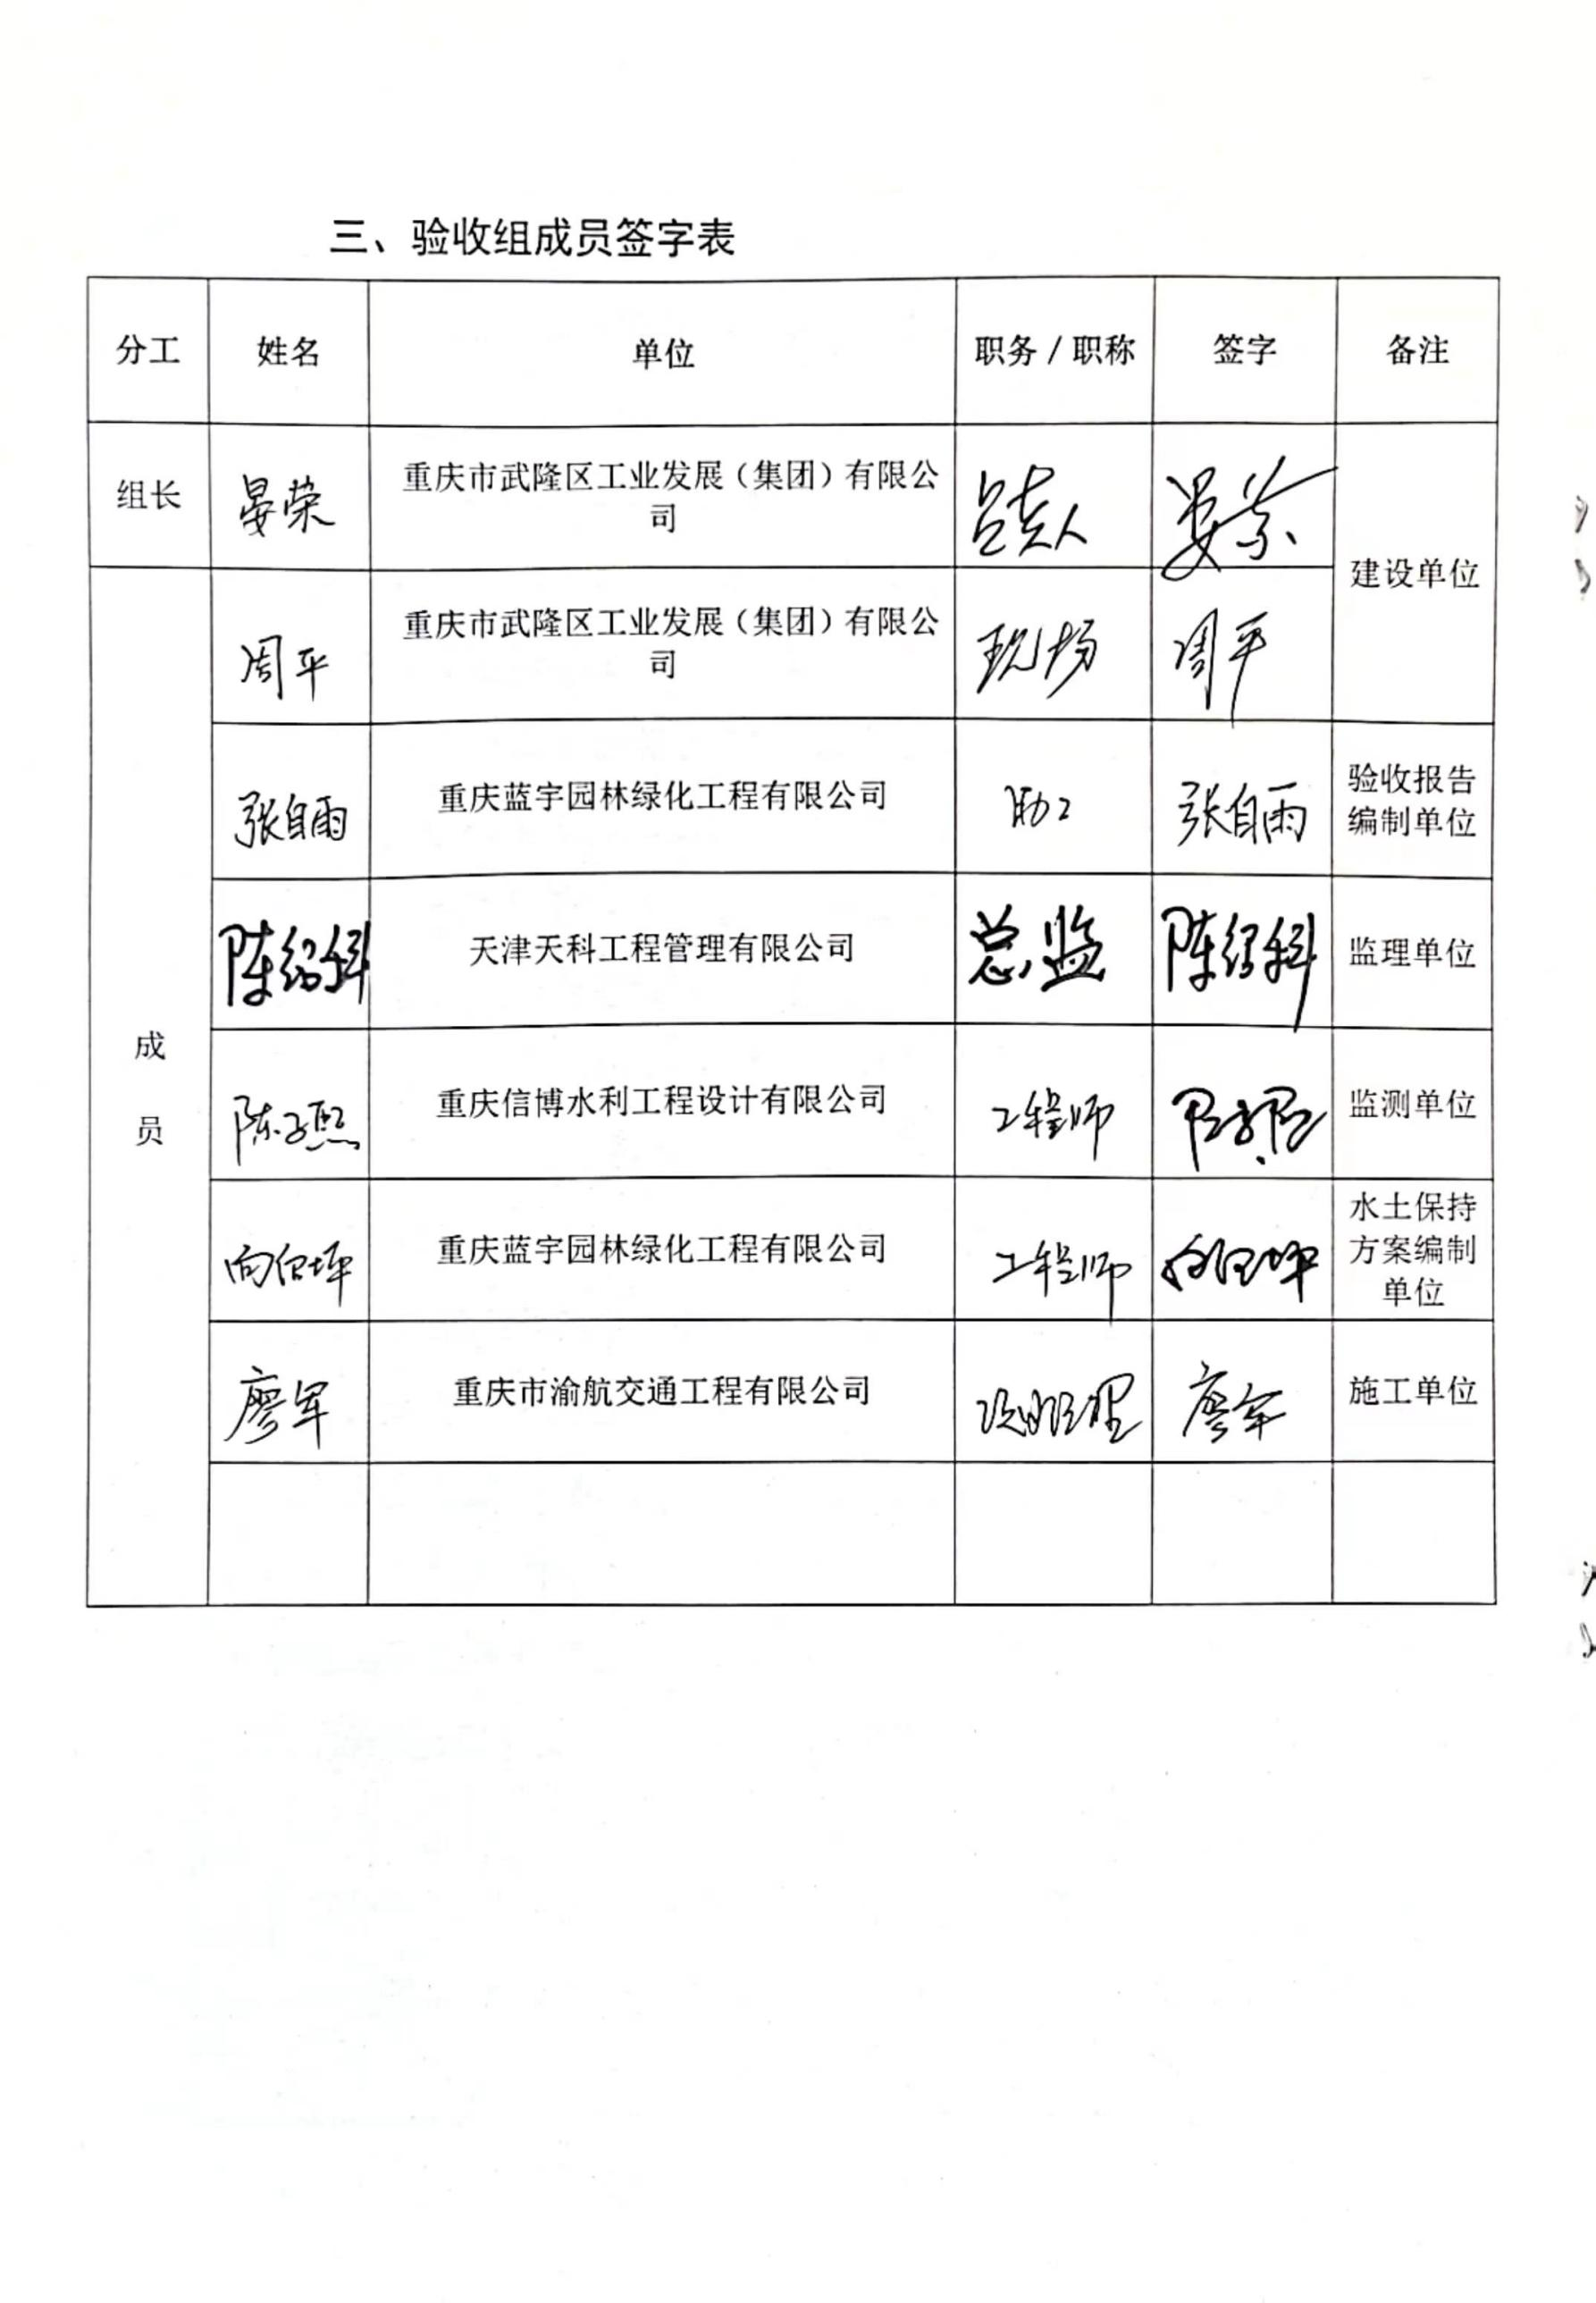 三、验收组成员签字表
分工 姓名 单位 职务/职称 签字 备注
组长 晏荣 重庆市武隆区工业发展（集团）有限公
司
负责人 晏荣
建设单位
周平 重庆市武隆区工业发展（集团）有限公
司
现场 周平
张自雨 重庆蓝宇园林绿化工程有限公司 助工 张自雨
验收报告
编制单位
陈绍科 天津天科工程管理有限公司 总监 陈绍科 监理单位
成
员
陈子熙 重庆信博水利工程设计有限公司 工程师 监测单位
向伯坪 重庆蓝宇园林绿化工程有限公司 工程师 向伯坪
水土保持
方案编制
单位
廖军 重庆市渝航交通工程有限公司 经理 廖军 施工单位